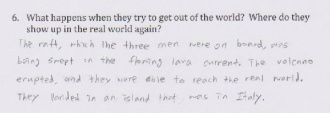 6. What happens when they try to get out of the world? Where do they
show up in the real world again?
The raft, which the three men were on board, was
being swept in the flowing lava current. The volcano
erupted, and they were able to reach the real world.
They landed in an island that was in Italy.